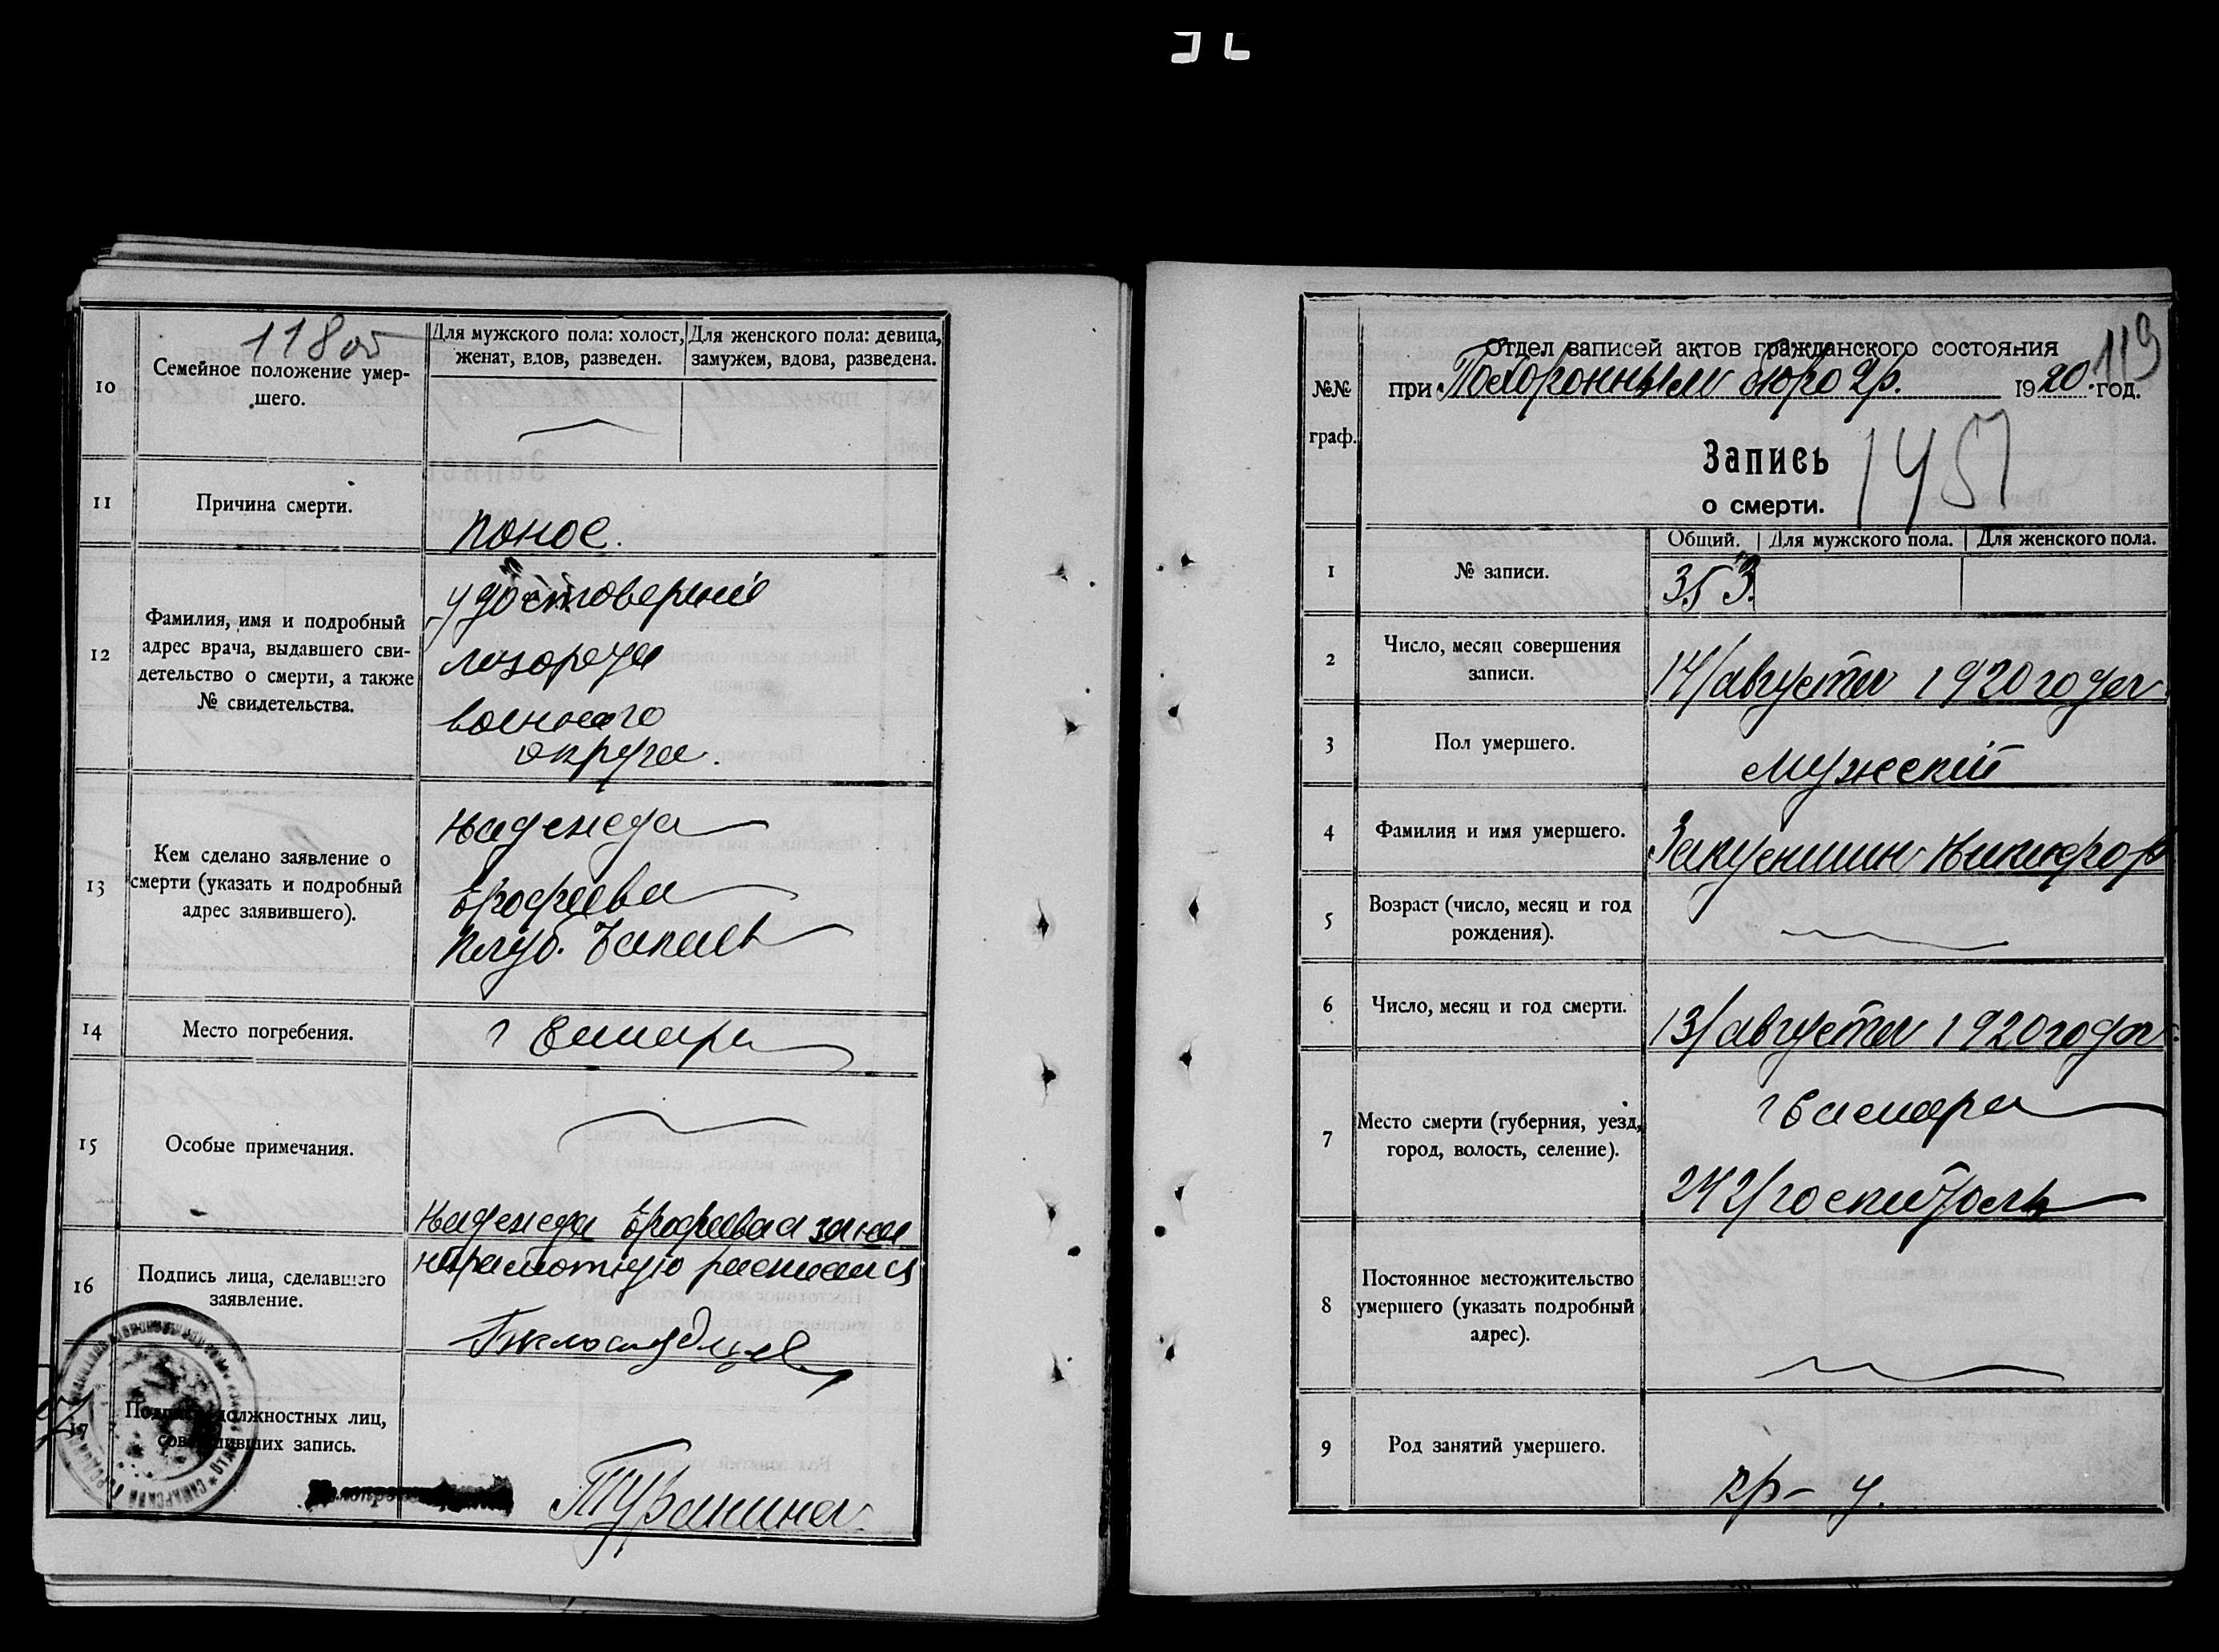 118 об
10
Семейное положение умер-
шего.
Для мужского пола: холост,
женат, вдов, разведен.
Для женского пола: девица,
замужем, вдова, разведена.
11
Причина смерти.
понос.
12
Фамилия, имя и подробный
адрес врача, выдавшего сви-
детельство о смерти, а также
№ свидетельства.
удостоверение
лазорета
военного
округа.
13
Кем сделано заявление о
смерти (указать и подробный
адрес заявившего).
Надежда
Ерофеева
клуб.
14
Место погребения.
г Самара
15
Особые примечания.
16
Подпись лица, сделавшего
заявление.
Надежда Ерофеева а за нея
неграмотную
17
Подпись должностных лиц,
совершивших запись.
Туранина
№№
граф.
Отдел записей актов гражданского состояния
при Похоронным бюро 2р. 1920 год.
119
Запись
о смерти.
1451
Общий.
Для мужского пола.
Для женского пола.
1
№ записи.
353.
2
Число, месяц совершения
записи.
14/августа 1920 года
3
Пол умершего.
мужской
4
Фамилия и имя умершего.
Никифор
5
Возраст (число, месяц и год
рождения).
6
Число, месяц и год смерти.
13/августа 1920 года
7
Место смерти (губерния, уезд,
город, волость, селение).
г Самара
242/госпиталь
8
Постоянное местожительство
умершего (указать подробный
адрес).
9
Род занятий умершего.
кр-ц.